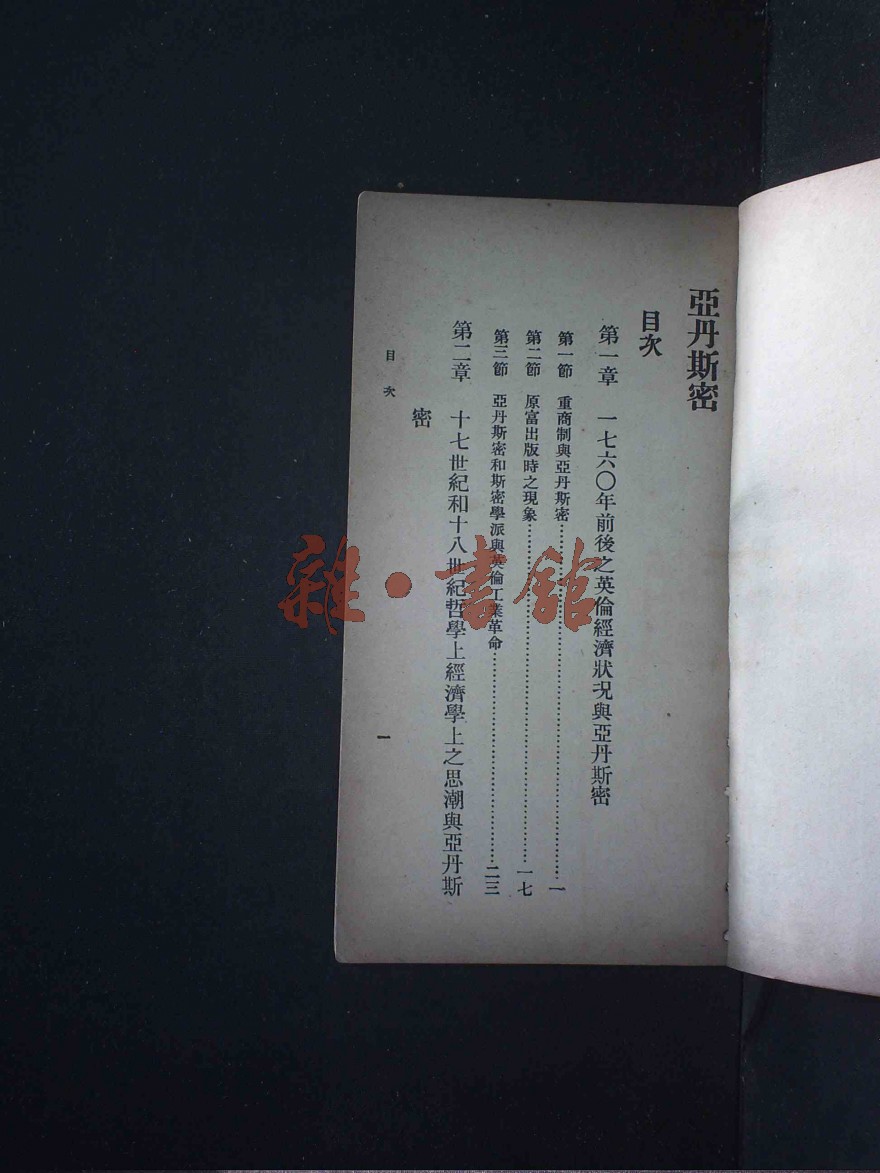 亞丹斯密
目次
第一章　一七六〇年前後之英倫經濟狀况與亞丹斯密
第一節　重商制與亞丹斯密……………………一
第二節　原富出版時之現象……………………一七
第三節　亞丹斯密和斯密學派與英倫工業革命……………………二三
第二章　十七世紀和十八世紀哲學上經濟學上之思潮與亞丹斯
密
目次
一
雜·書館